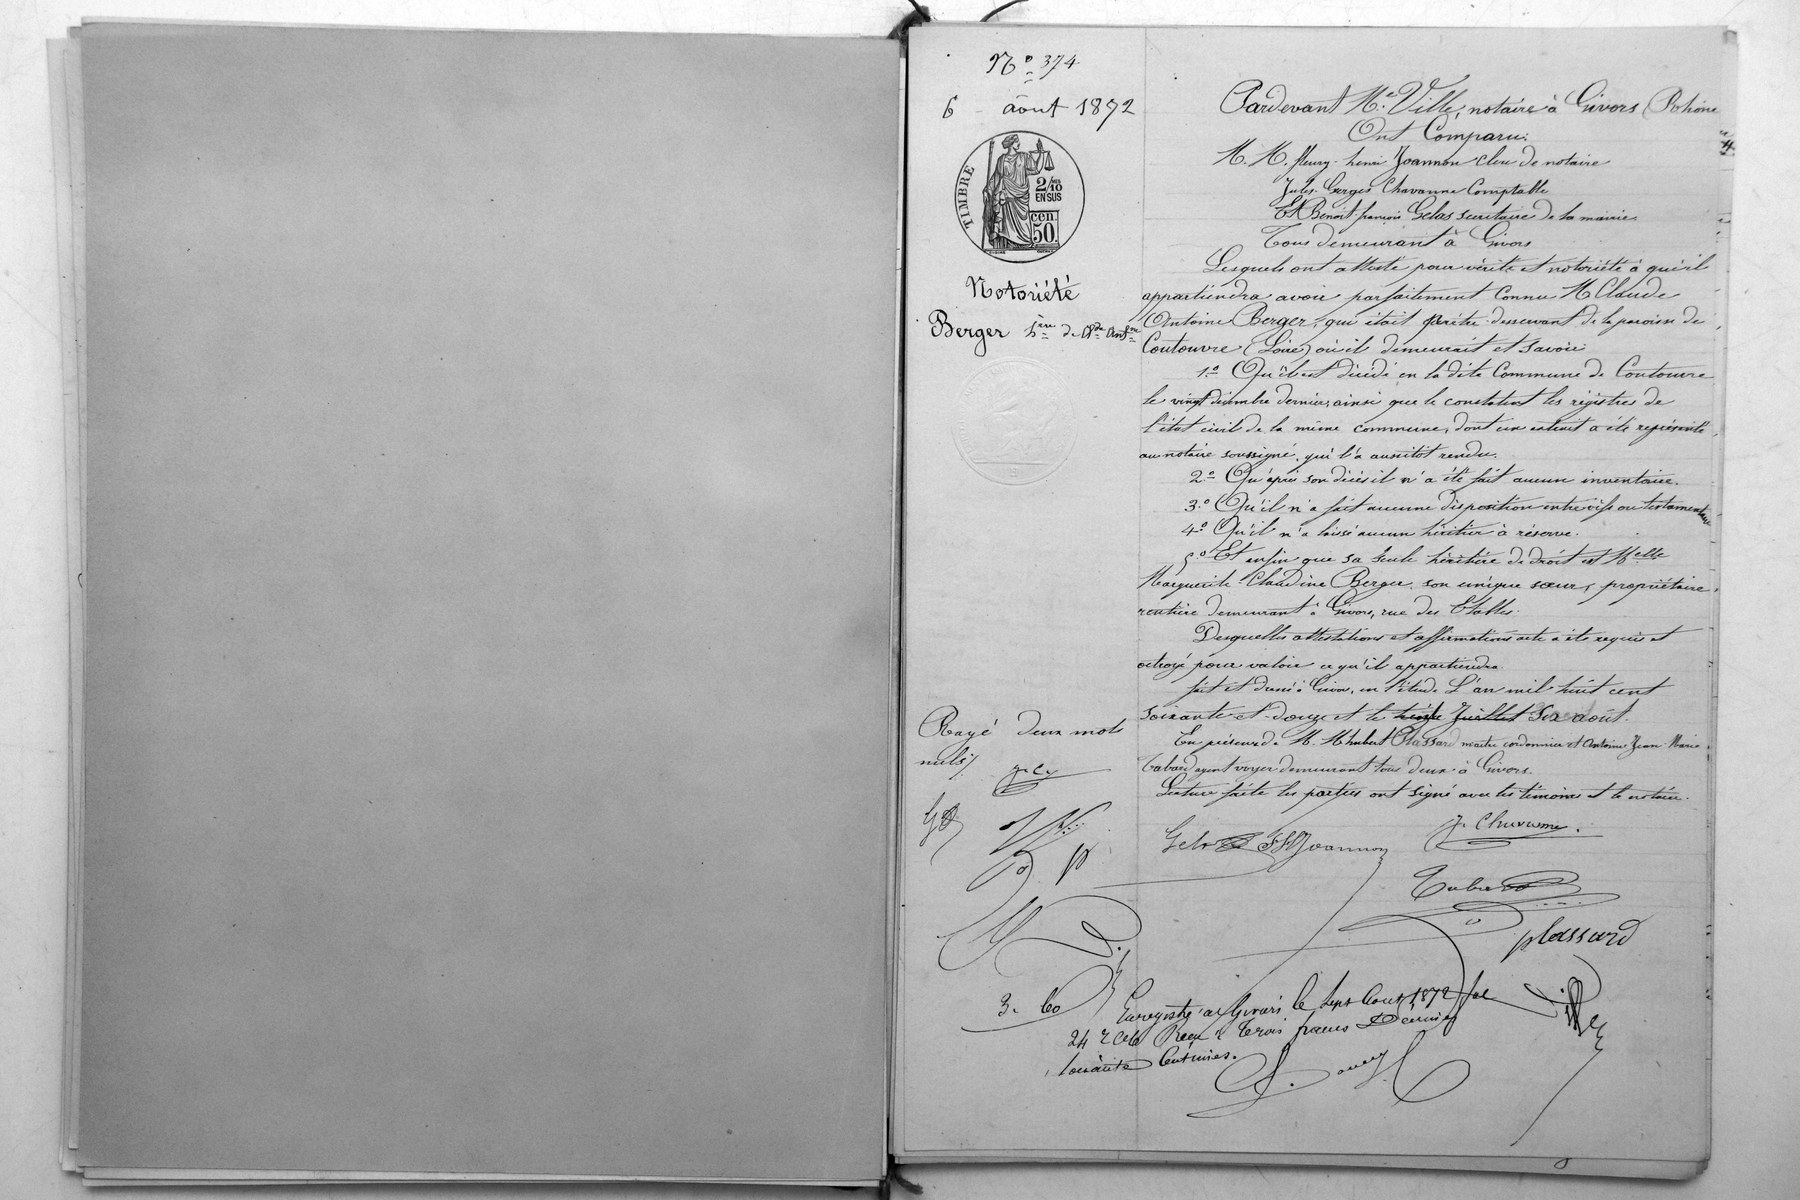 No 374
6 août 1872
TIMBRE
2/10
EN SUS
cen.
50.
Notoriété
Berger
Pardevant Me Ville, notaire à Givors (Rhône
Ont Comparu:
M. M. fleury-henri Joannon clerc de notaire
Jules Georges Chavanne Comptable
Et Benoit-françois Gelas secrétaire de la mairie
Tous demeurant à Givors
Lesquels ont attesté pour vérité et notoriété à qu'il
appartiendra avoir parfaitement connu M Claude
Antoine Berger, qui était prêtre desservant de la paroisse de
Coutouvre (Loire) où il demeurait et savoir
1o Qu'il est décédé en la dite Commune de Coutouvre
le vingt décembre dernier, ainsi que le constatent les régistres de
l'état civil de la même commune, dont un extrait a été représenté
au notaire soussigné, qui l'a aussitôt rendu.
2o Qu'après son décès il n'a été fait aucun inventaire.
3o Qu'il n'a fait aucune disposition entrevifs ou testamentaire
4o Qu'il n'a laissé aucun héritier à réserve.
5o Et enfin que sa seule héritière de droit est Melle
Marguerite Claudine Berger, son unique sœur, propriétaire
rentière demeurant à Givors, rue des Etables.
Desquelles attestations et affirmations acte a été requis et
octroyé pour valoir ce qu'il appartiendra.
fait et dressé à Givors, en l'étude L'an mil huit cent
soixante-et-douze et le trente Juillet Six août.
En présence de M. M hubert Plassard maître cordonnier et Antoine Jean Marie
Tabard agent voyer demeurant tous deux à Givors.
Lecture faite les parties ont signé avec les témoins et le notaire.
Rayé deux mots
nuls
Gelas FHJoannon
J. Chavanne
Tabard
plassard
Ville
3. 60
Enregistré à Givors le sept Aout 1872 fol
24 Reçu Trois francs Décimes
soixante Centimes.